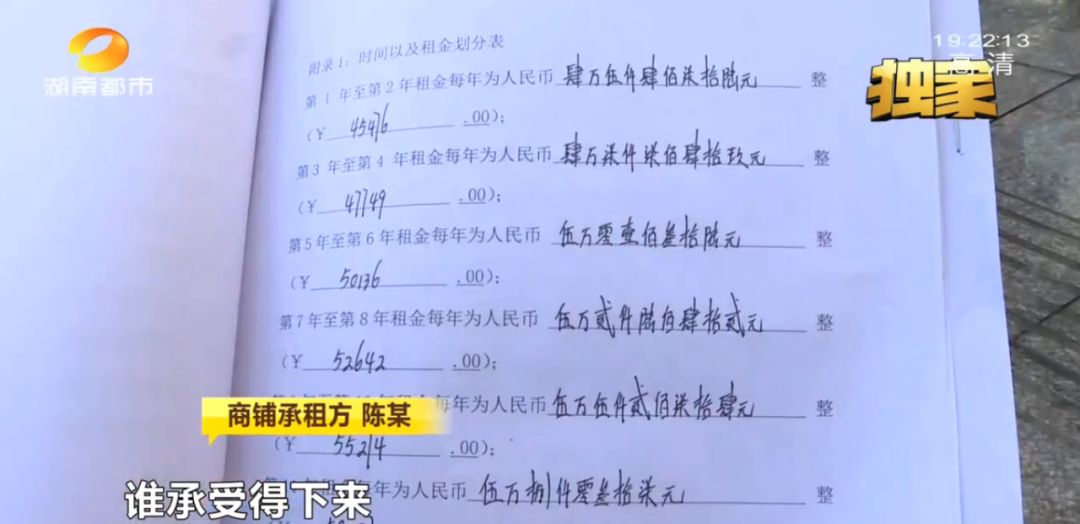 湖南都市
19:22:13
高清
独家
附录1：时间以及租金划分表
第 1 年至第 2 年租金每年为人民币 肆万伍仟肆佰柒拾陆元 整
（¥ 45476 .00）；
第 3 年至第 4 年租金每年为人民币 肆万柒仟柒佰肆拾玖元 整
（¥ 47749 .00）；
第 5 年至第 6 年租金每年为人民币 伍万零壹佰叁拾陆元 整
（¥ 50136 .00）；
第 7 年至第 8 年租金每年为人民币 伍万贰仟陆佰肆拾贰元 整
（¥ 52642 .00）；
每年为人民币 伍万伍仟贰佰柒拾肆元 整
（¥ 55214 .00）；
商铺承租方 陈某
年为人民币 伍万捌仟零叁拾柒元 整
谁承受得下来